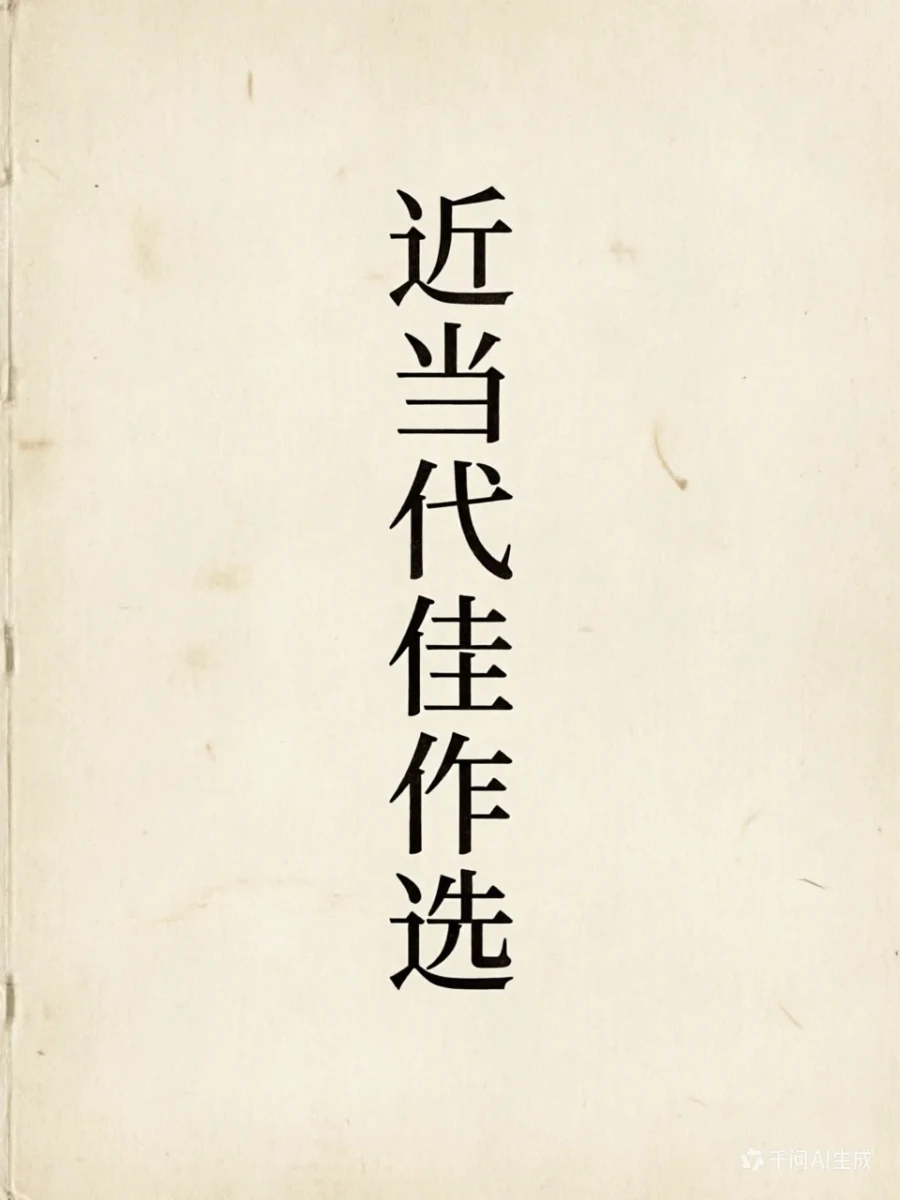 近当代佳作选
千问AI生成